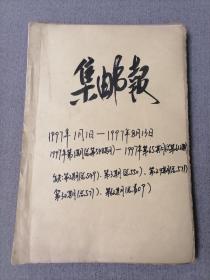 集邮报
1997年1月1日—1997年8月13日
1997年第1期(总第548期)—1997年第65期(总第612期)
缺:第2期(总549)、第3期(总550)、第24期(总571)
第30期(总577)、第62期(总609)